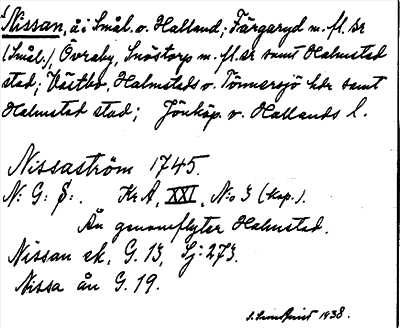 Nissan, å i Smål. o. Halland; Färgaryd m. fl. sr
(Smål.), Övraby, Snöstorp m. fl. sr samt Halmstad
stad; Västbo, Halmstads o. Tönnersjö hdr samt
Halmstad stad; Jönköp. o. Hallands l.
Nissaström 1745.
N: G: §:. Kr A, XXI, N:o 3 (Kop.).
Ån genomflyter Halmstad.
Nissan ek. G. 13, Sj: 273.
Nissa ån G. 19.
1938.